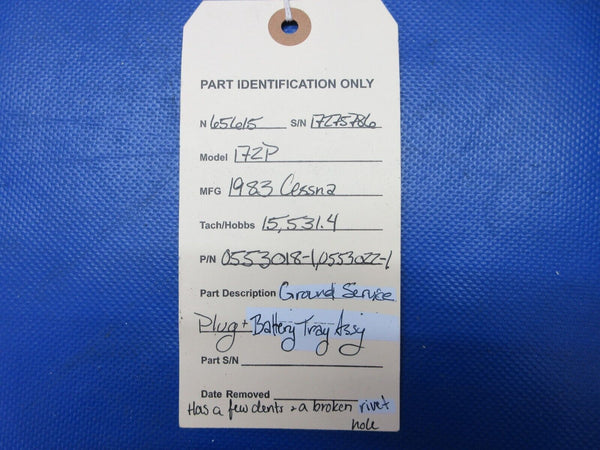 PART IDENTIFICATION ONLY
N 65615 S/N 17275786
Model 172P
MFG 1983 Cessna
Tach/Hobbs 15,531.4
P/N 0553018-1,0553022-1
Part Description Ground Service
Plug + Battery Tray Assy
Part S/N
Date Removed
Has a few dents + a broken rivet
hole